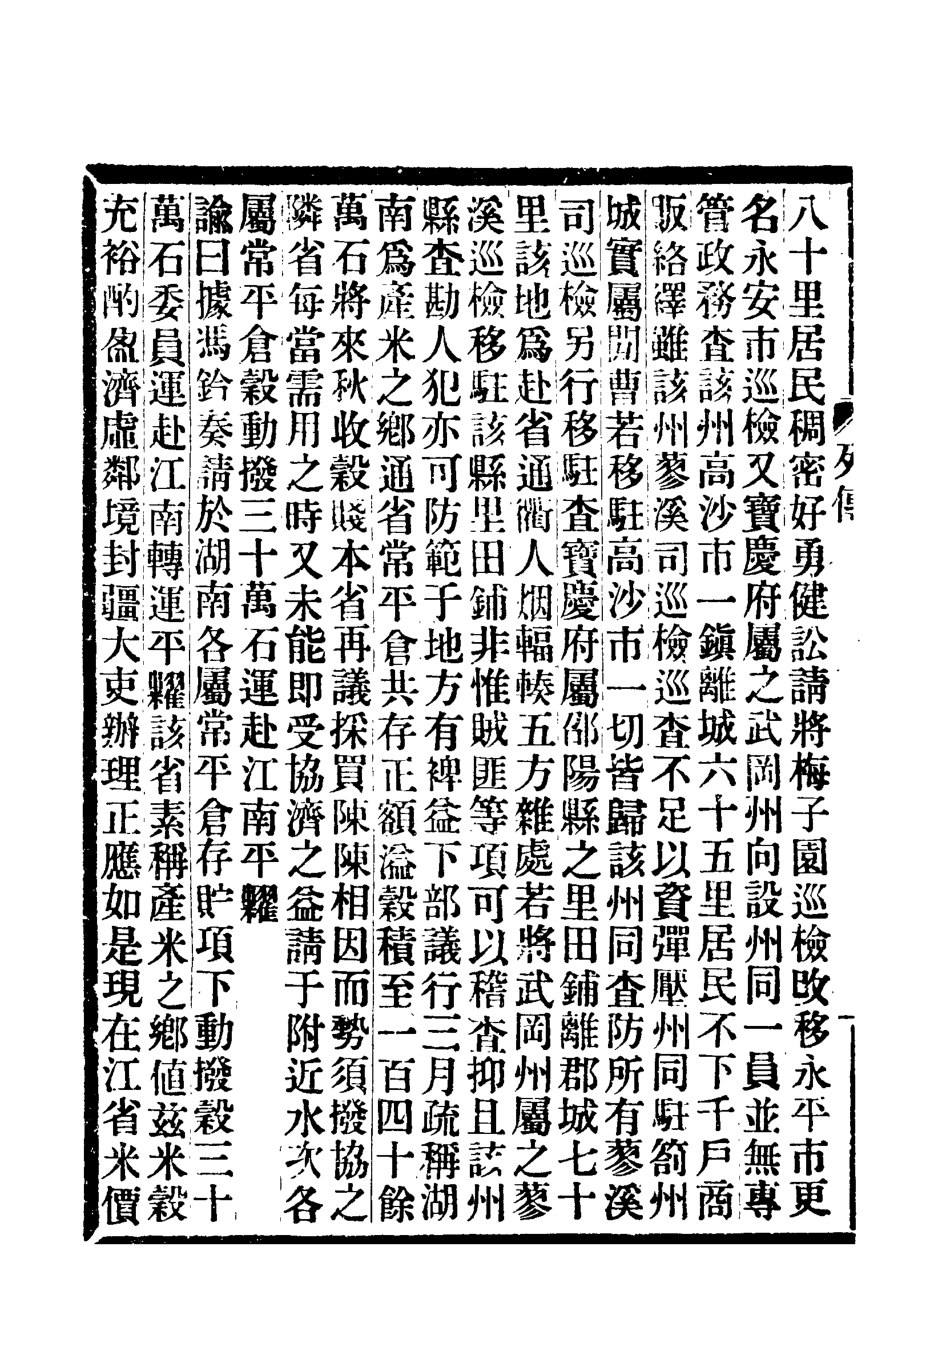 列傳
八十里居民稠密好勇健訟請將梅子園巡檢改移永平市更
名永安市巡檢又寶慶府屬之武岡州向設州同一員並無專
管政務查該州高沙市一鎭離城六十五里居民不下千戶商
販絡繹雖該州蓼溪司巡檢巡查不足以資彈壓州同駐劄州
城實屬閒曹若移駐高沙市一切皆歸該州同查防所有蓼溪
司巡檢另行移駐查寶慶府屬邵陽縣之里田鋪離郡城七十
里該地爲赴省通衢人烟輻輳五方雜處若將武岡州屬之蓼
溪巡檢移駐該縣里田鋪非惟賊匪等項可以稽查抑且該州
縣查勘人犯亦可防範于地方有裨益下部議行三月疏稱湖
南爲產米之鄉通省常平倉共存正額溢穀積至一百四十餘
萬石將來秋收穀賤本省再議採買陳陳相因而勢須撥協之
隣省每當需用之時又未能即受協濟之益請于附近水次各
屬常平倉穀動撥三十萬石運赴江南平糶
諭曰據馮鈐奏請於湖南各屬常平倉存貯項下動撥穀三十
萬石委員運赴江南轉運平糶該省素稱產米之鄉値茲米穀
充裕酌盈濟虛鄰境封疆大吏辦理正應如是現在江省米價